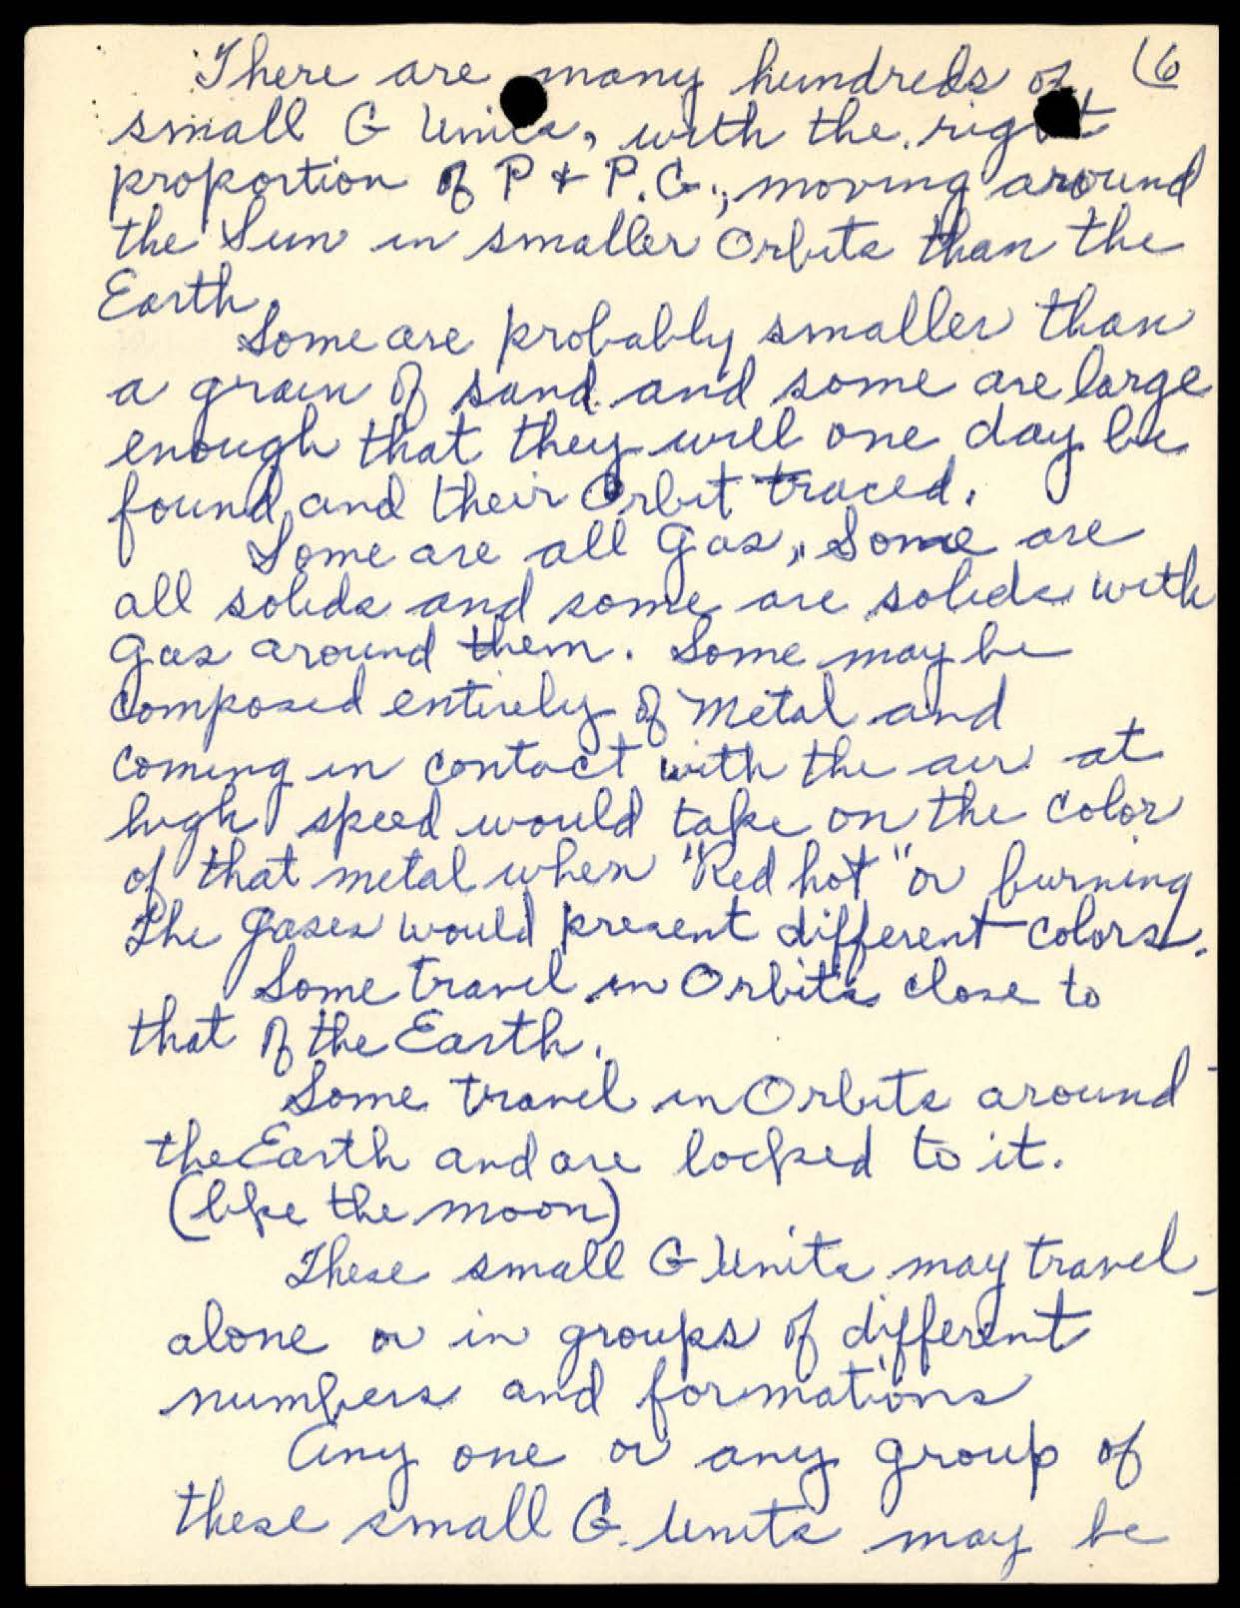 There are many hundreds of (6
small G Units, with the right
proportion of P & P.G., moving around
the Sun in smaller Orbits than the
Earth.
Some are probably smaller than
a grain of sand and some are large
enough that they will one day be
found, and their Orbit traced.
Some are all Gas, Some are
all solids and some are solids with
Gas around them. Some may be
composed entirely of Metal and
coming in contact with the air at
high speed would take on the color
of that metal when "Red hot" or burning
The gases would present different colors.
Some travel in Orbits close to
that of the Earth.
Some travel in Orbits around
the Earth and are locked to it.
(like the moon)
These small G Units may travel
alone or in groups of different
numbers and formations
Any one or any group of
these small G. Units may be